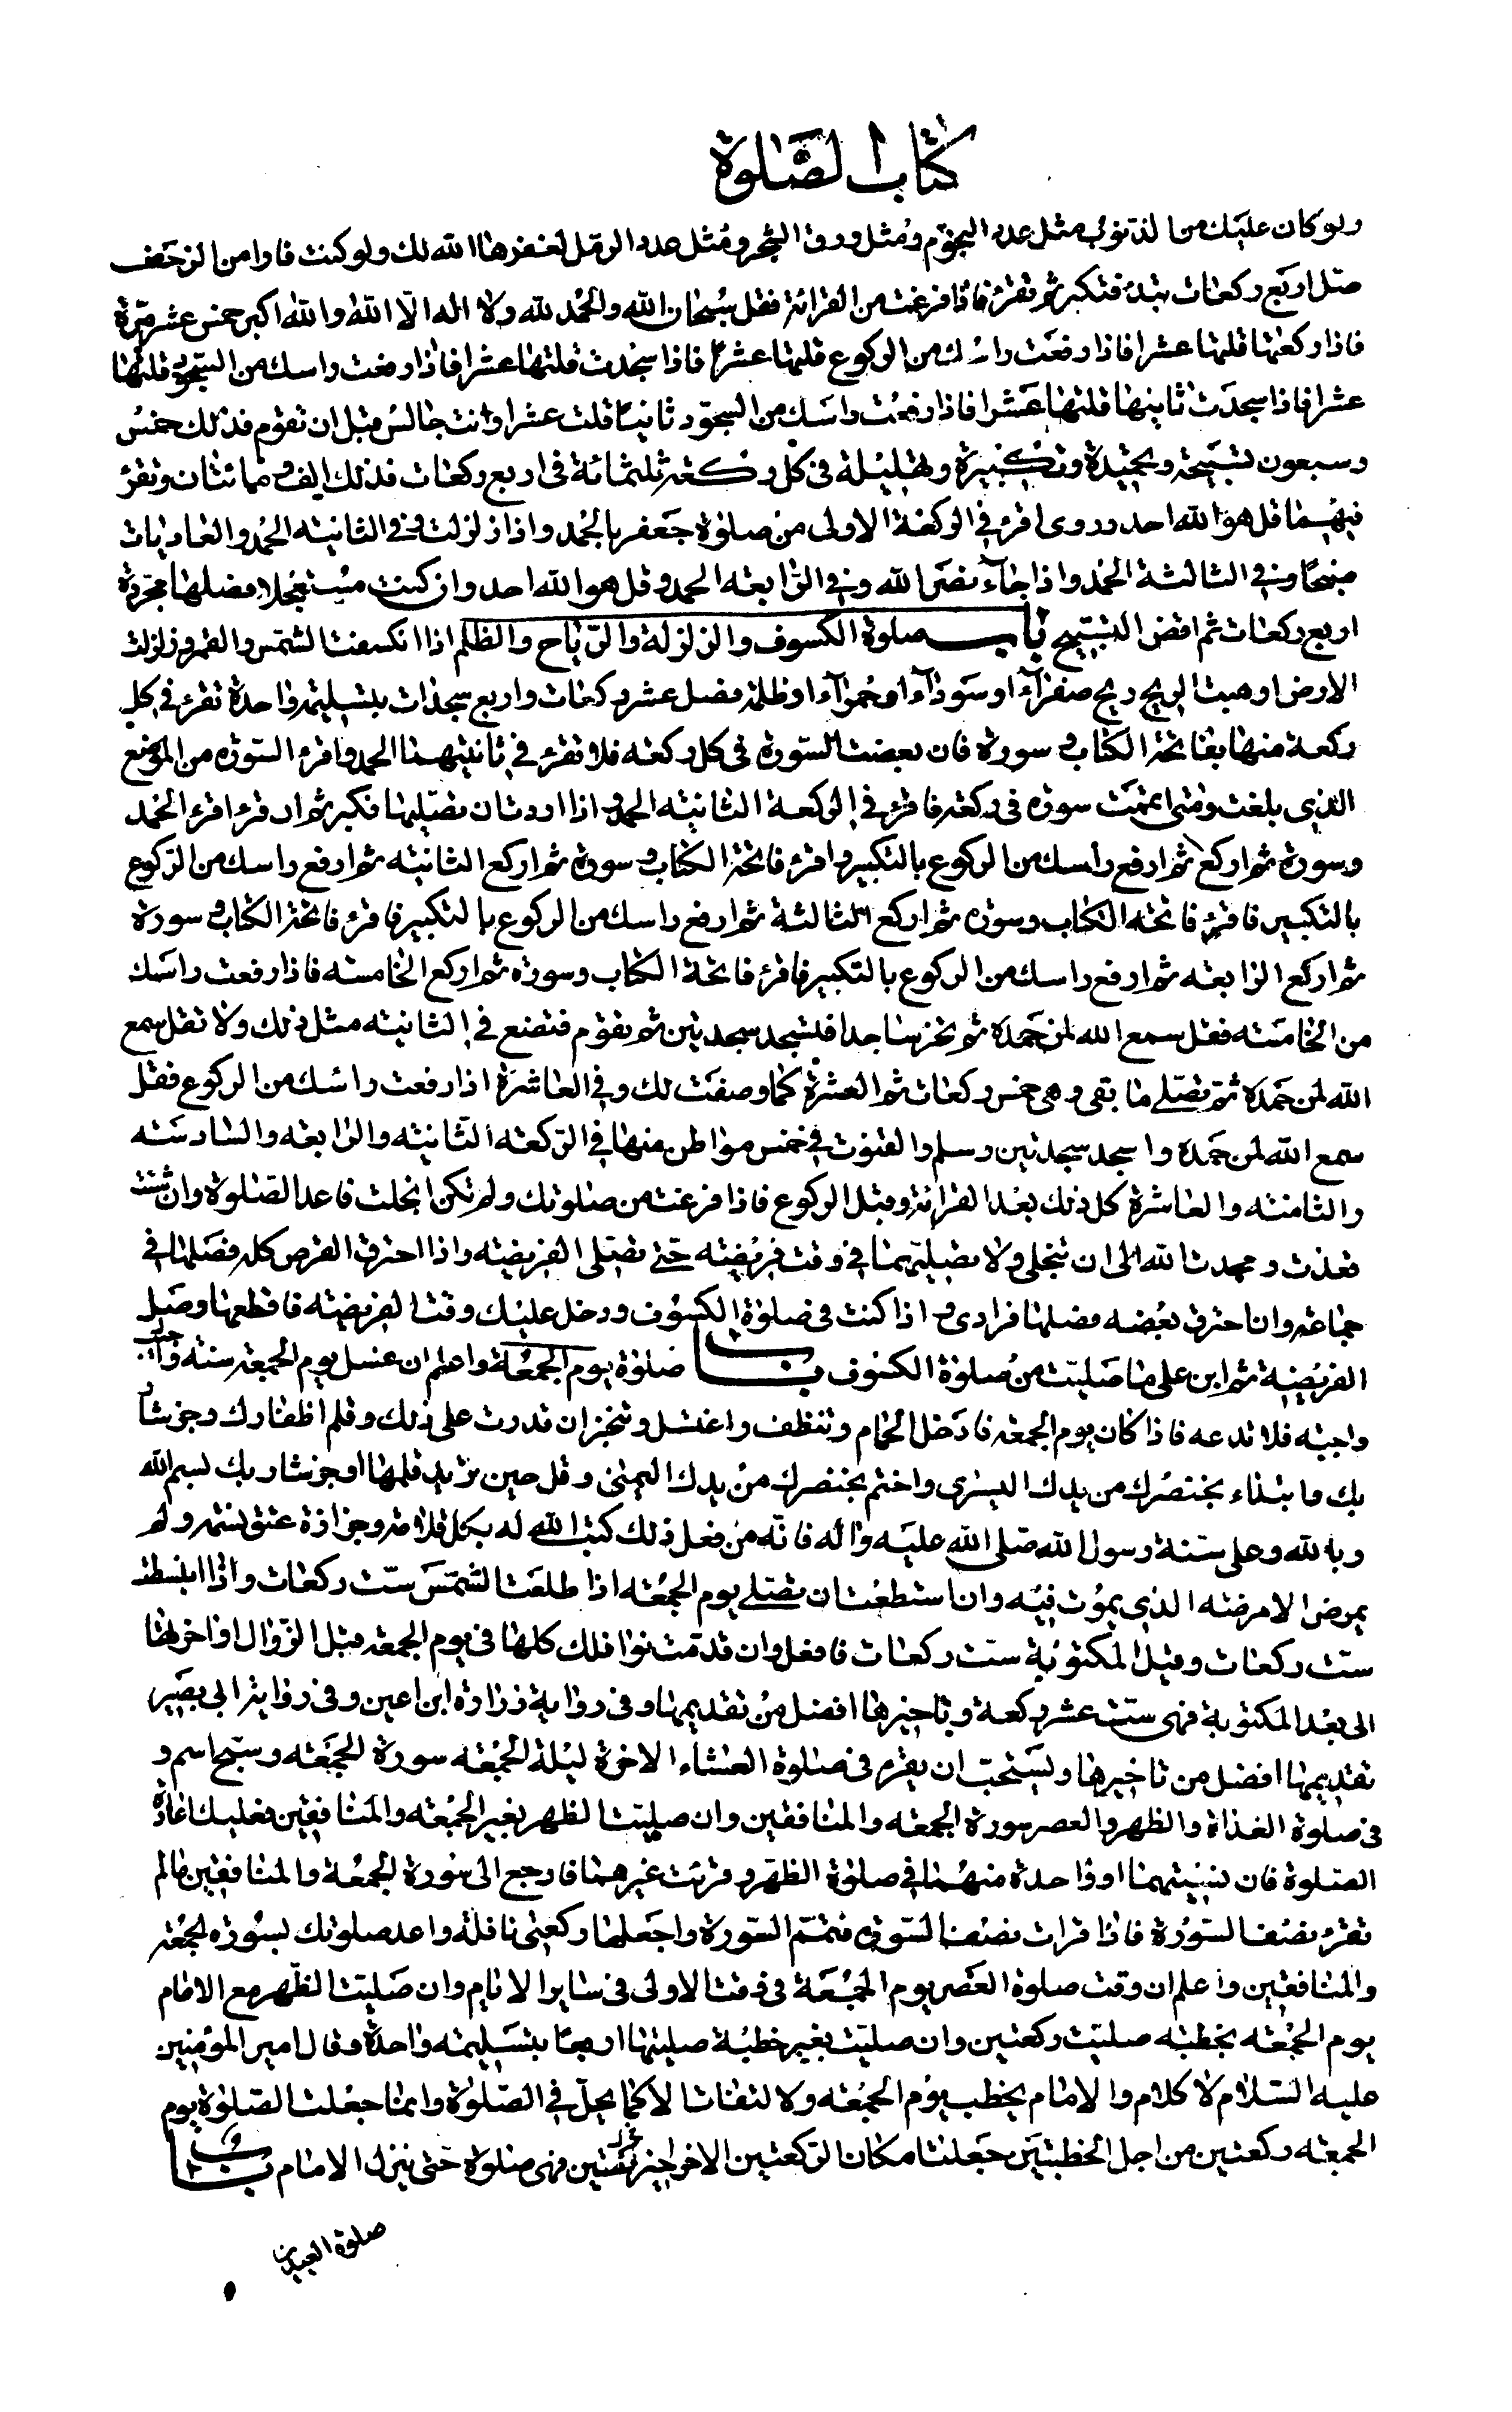 كتاب الصلوة
ولو كان عليك من الذنوب مثل عدد النجوم ومثل ورق الشجر ومثل عدد الرمل لغفرها الله لك ولو كنت فارا من الزحف
صل اربع ركعات تبدء فتكبر ثم تقرء فاذا فرغت من القرائة فقل سبحان الله والحمد لله ولا اله الا الله والله اكبر خمس عشر مرة
فاذا ركعتها قلتها عشرا فاذا رفعت راسك من الركوع قلتها عشرا فاذا سجدت قلتها عشرا فاذا رفعت راسك من السجود قلتها
عشرا فاذا سجدت ثانيها قلتها عشرا فاذا رفعت راسك من السجود ثانيا قلت عشرا وانت جالس قبل ان تقوم فذلك خمس
وسبعون تسبيحة وتحميدة وتكبيرة وتهليلة في كل ركعة ثلثمائة في اربع ركعات فذلك الف ومائتان وتقرء
فيهما قل هو الله احد وروى اقرء في الركعة الاولى من صلوة جعفر بالحمد واذا زلزلت وفي الثانية الحمد والعاديات
ضبحا وفي الثالثة الحمد واذا جآء نصر الله وفي الرابعة الحمد وقل هو الله احد وان كنت مستعجلا فصلها مجردة
اربع ركعات ثم اقض التسبيح باب صلوة الكسوف والزلزلة والرياح والظلم اذا انكسفت الشمس والقمر وزلزلت
الارض او هبت الريح ريح صفرآء او سودآء او حمرآء او ظلمة فصل عشر ركعات واربع سجدات بتسليمة واحدة تقرء في كل
ركعة منها بفاتحة الكتاب وسورة فان بعضت السورة في كل ركعة فلا تقرء في ثانيتهما الحمد واقرء السورة من الموضع
الذي بلغت ومتى اتممت سورة في ركعة فاقرء في الركعة الثانية الحمد واذا اردت ان تصليها فكبر ثم اقرء الحمد
وسورة ثم اركع ثم ارفع راسك من الركوع بالتكبير واقرء فاتحة الكتاب وسورة ثم اركع الثانية ثم ارفع راسك من الركوع
بالتكبير فاقرء فاتحة الكتاب وسورة ثم اركع الثالثة ثم ارفع راسك من الركوع بالتكبير فاقرء فاتحة الكتاب وسورة
ثم اركع الرابعة ثم ارفع راسك من الركوع بالتكبير فاقرء فاتحة الكتاب وسورة ثم اركع الخامسة فاذا رفعت راسك
من الخامسة فقل سمع الله لمن حمده ثم تخر ساجدا فتسجد سجدتين ثم تقوم فتصنع في الثانية مثل ذلك ولا تقل سمع
الله لمن حمده ثم تصلى ما بقى وهى خمس ركعات ثم العشرة كما وصفت لك وفي العاشرة اذا رفعت راسك من الركوع فقل
سمع الله لمن حمده واسجد سجدتين وسلم والقنوت في خمس مواطن منها في الركعة الثانية والرابعة والسادسة
والثامنة والعاشرة كل ذلك بعد القرائة وقبل الركوع فاذا فرغت من صلوتك ولم تكن انجلت فاعد الصلوة وان شئت
قعدت ومجدت الله الى ان تنجلي ولا تصليهما في وقت فريضة حتى تصلى الفريضة واذا احترق القرص كله فصلها في
جماعة وان احترق بعضه فصلها فرادى واذا كنت في صلوة الكسوف ودخل عليك وقت الفريضة فاقطعها وصل
الفريضة ثم ابن على ما صليت من صلوة الكسوف باب صلوة يوم الجمعة واعلم ان غسل يوم الجمعة سنة
واجبة فلا تدعه فاذا كان يوم الجمعة فادخل الحمام وتنظف واغتسل وتنجز ان قدرت على ذلك وقلم اظفارك وجز شار
بك وابتداء بخنصرك من يدك اليسرى واختم بخنصرك من يدك اليمنى وقل حين تريد قلمها او جز شاربك بسم الله
وبالله وعلى سنة رسول الله صلى الله عليه واله فانه من فعل ذلك كتب الله له بكل قلامة وجزازة عتق نسمة ولم
يمرض الا مرضه الذي يموت فيه وان استطعت ان تصلى يوم الجمعة اذا طلعت الشمس ست ركعات واذا انبسطت
ست ركعات وقبل المكتوبة ست ركعات فافعل وان قدمت نوافلك كلها في يوم الجمعة قبل الزوال او اخرتها
الى بعد المكتوبة فهى ست عشر ركعة وتاخيرها افضل من تقديمها وفى رواية زرارة ابن اعين وفى رواية ابى بصير
تقديمها افضل من تاخيرها ويستحب ان يقرء في صلوة العشاء الاخرة ليلة الجمعة سورة الجمعة وسبح اسم و
في صلوة الغداة والظهر والعصر سورة الجمعة والمنافقين وان صليت الظهر بغير الجمعة والمنافقين فعليك اعادة
الصلوة فان نسيتهما او واحدة منهما في صلوة الظهر وقرئت غيرهما فارجع الى سورة الجمعة والمنافقين ما لم
تقرء نصف السورة فاذا قرات نصف السورة فتمم السورة واجعلها ركعتى نافلة واعد صلوتك بسورة الجمعة
والمنافقين واعلم ان وقت صلوة العصر يوم الجمعة في وقت الاولى في ساير الايام وان صليت الظهر مع الامام
يوم الجمعة بخطبة صليت ركعتين وان صليت بغير خطبة صليتها اربعا بتسليمة واحدة وقال امير المؤمنين
عليه السلام لا كلام والامام يخطب يوم الجمعة ولا التفات الا كما يحل في الصلوة وانما جعلت الصلوة يوم
الجمعة ركعتين من اجل الخطبتين جعلتا مكان الركعتين الاخيرتين فهى صلوة حتى ينزل الامام باب
صلوة العيدين